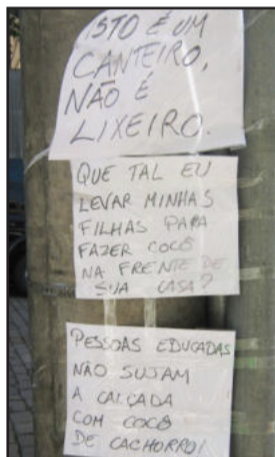 ISTO É UM
CANTEIRO,
NÃO É
LIXEIRO.
QUE TAL EU
LEVAR MINHAS
FILHAS PARA
FAZER COCÔ
NA FRENTE DE
SUA CASA?
PESSOAS EDUCADAS
NÃO SUJAM
A CALÇADA
COM COCÔ
DE CACHORRO!